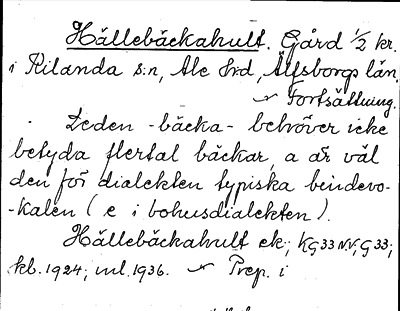 Hällebäckahult. Gård 1/2 kr.
i Kilanda s:n, Ale hrd, Älfsborgs län.
Fortsättning.
Leden -bäcka- behöver icke
betyda flertal bäckar, a är väl
den för dialekten typiska bindevo-
-kalen (e i bohusdialekten).
Hällebäckahult ek.; KG33 NV, G33;
kb. 1924; ml. 1936. Prep. i